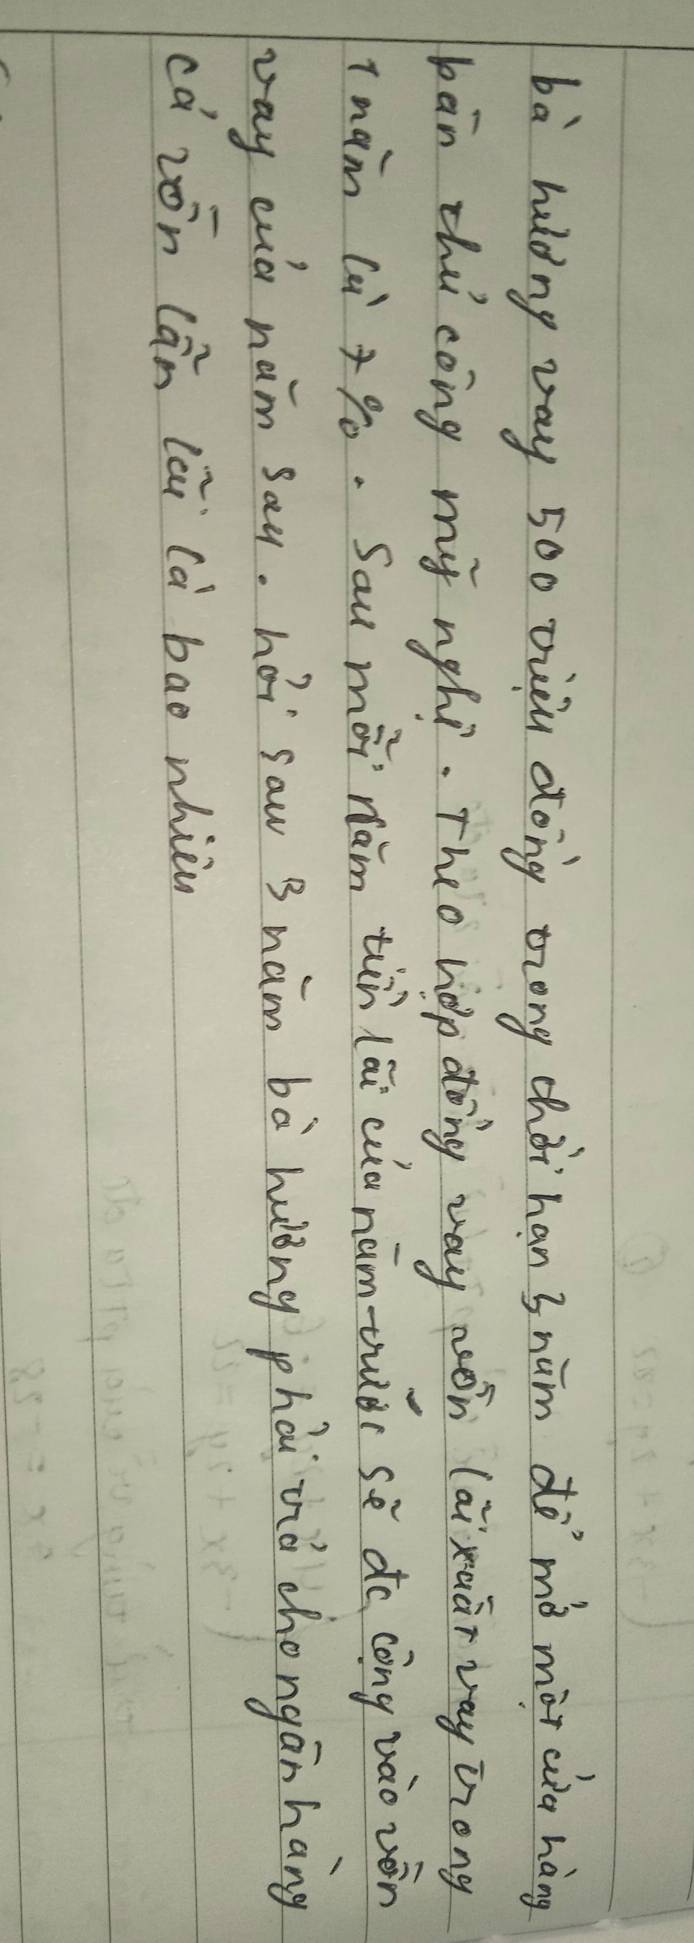 bà hương vay 500 triệu đồng trong thời hạn 3 năm để mở một cửa hàng
bán thủ công mỹ nghị. Theo hợp đồng vay vốn lãi xuất vay trong
1 năm là 7%. Sau mỗi năm tiền lãi của năm trước sẽ đc cộng vào vốn
vay của năm sau. hỏi sau 3 năm bà hương phải trả cho ngân hàng
cả vốn lẫn lãi là bao nhiêu